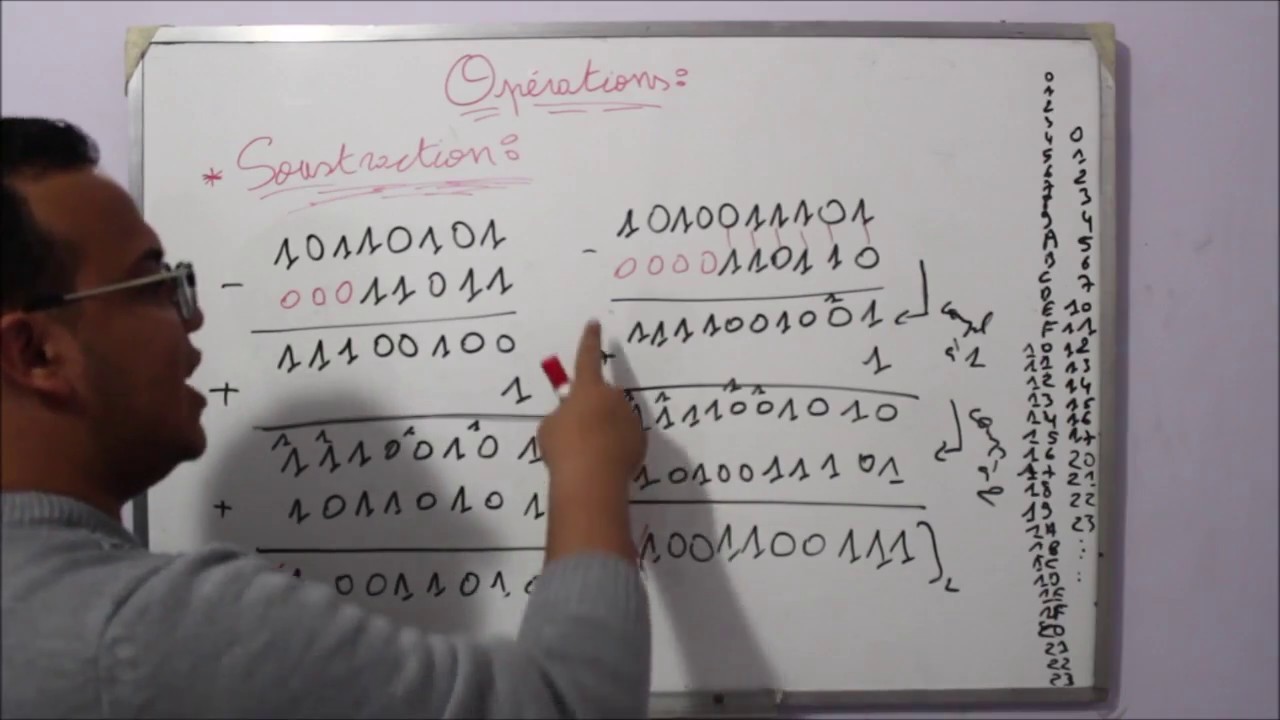 Opérations:
* Soustraction:
10110101
- 00011011
11100100
+ 1
11100101
+ 10110101
0011010
1010011101
- 0000110110
1111001001
+ 1
1111001010
1010011101
1001100111]₂
compl à 1
compl à 2
0
1
2
3
4
5
6
7
8
9
A
B
C
D
E
F
10
11
12
13
14
15
16
17
18
19
1A
1B
1C
1D
1E
1F
20
21
22
23
0
1
2
3
4
5
6
7
10
11
12
13
14
15
16
17
20
21
22
23
:
: